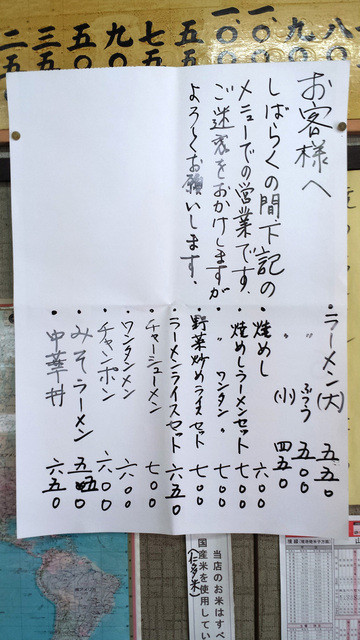 お客様へ
しばらくの間下記の
メニューでの営業です。
ご迷惑をおかけしますが
よろしくお願いします。
・ラーメン(大) 五五〇
〃 ふつう 五〇〇
〃 (小) 四五〇
・焼めし 六〇〇
・焼めしラーメンセット 七〇〇
・〃 ワンタン 〃 七〇〇
・野菜炒めライスセット 七〇〇
・ラーメンライスセット 六五〇
・チャーシューメン 七〇〇
・ワンタンメン 六〇〇
・チャンポン 六〇〇
・みそラーメン 五五〇
・中華丼 六五〇
当店のお米はすべ
国産米を使用してい
(仁多米)